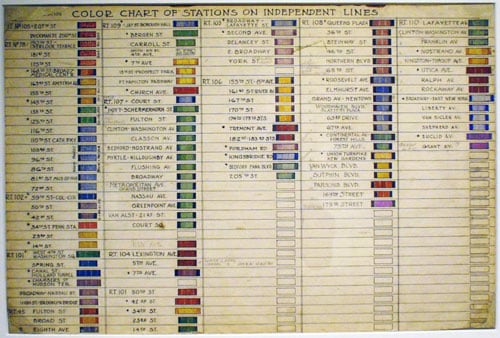 COLOR CHART OF STATIONS ON INDEPENDENT LINES
175TH ST
163RD ST AMSTERDAM
155TH ST
145TH ST
135TH ST
125TH ST
116TH ST
110TH ST CATH. PKY
103RD ST
96TH ST
86TH ST
81ST ST
72ND ST
RT. 102 59TH ST-COL. CIR.
50TH ST
42ND ST
34TH ST PENN STA
23RD ST
14TH ST
RT. 101 WEST 4TH ST
SPRING ST.
CANAL ST
CHAMBERS ST
HUDSON TER.
BROADWAY-NASSAU ST.
HIGH ST-BROOKLYN BRIDGE
FULTON ST
BROAD ST
EIGHTH AVE
RT. 109 JAY ST BOROUGH HALL
BERGEN ST
CARROLL ST
7TH AVE
15TH ST PROSPECT PARK
FT HAMILTON PARKWAY
CHURCH AVE.
RT. 107 COURT ST.
HOYT-SCHERMERHORN ST
FULTON ST.
CLINTON-WASHINGTON AV
CLASSON AV.
BEDFORD-NOSTRAND AV
MYRTLE-WILLOUGHBY AV
FLUSHING AV
BROADWAY
METROPOLITAN AVE
NASSAU AV.
GREENPOINT AVE
VAN ALST-21ST ST.
COURT SQ
RT. 104 LEXINGTON AVE.
5TH AVE.
7TH AVE.
RT. 101 50TH ST
42ND ST
34TH ST
23RD ST
14TH ST
RT. 103 BROADWAY LAFAYETTE ST
SECOND AVE.
DELANCEY ST
E. BROADWAY
YORK ST
RT. 106 155TH ST-8TH AVE
161ST ST RIVER AV
167TH ST
170TH ST
174TH-175TH STS
TREMONT AVE.
182ND-183RD STS
FORDHAM RD
KINGSBRIDGE RD
BEDFORD PARK BLVD
205TH ST
RT. 108 QUEENS PLAZA
36TH ST
STEINWAY ST
46TH ST
NORTHERN BLVD
65TH ST
ROOSEVELT AVE
ELMHURST AVE.
GRAND AV-NEWTOWN
WOODHAVEN BLVD
63RD DRIVE
67TH AVE.
CONTINENTAL AV
FOREST HILLS
75TH AV.
UNION TURNPIKE
KEW GARDENS
VAN WYCK BLVD.
SUTPHIN BLVD.
PARSONS BLVD.
169TH STREET
179TH STREET
RT. 110 LAFAYETTE AV.
CLINTON-WASHINGTON AV
FRANKLIN AV
NOSTRAND AV
KINGSTON-THROOP AVE.
UTICA AVE
RALPH AV.
ROCKAWAY AV
BROADWAY-EAST NEW YORK
LIBERTY AV.
VAN SICLEN AV
SHEPHERD AV.
EUCLID AV.
GRANT AV.